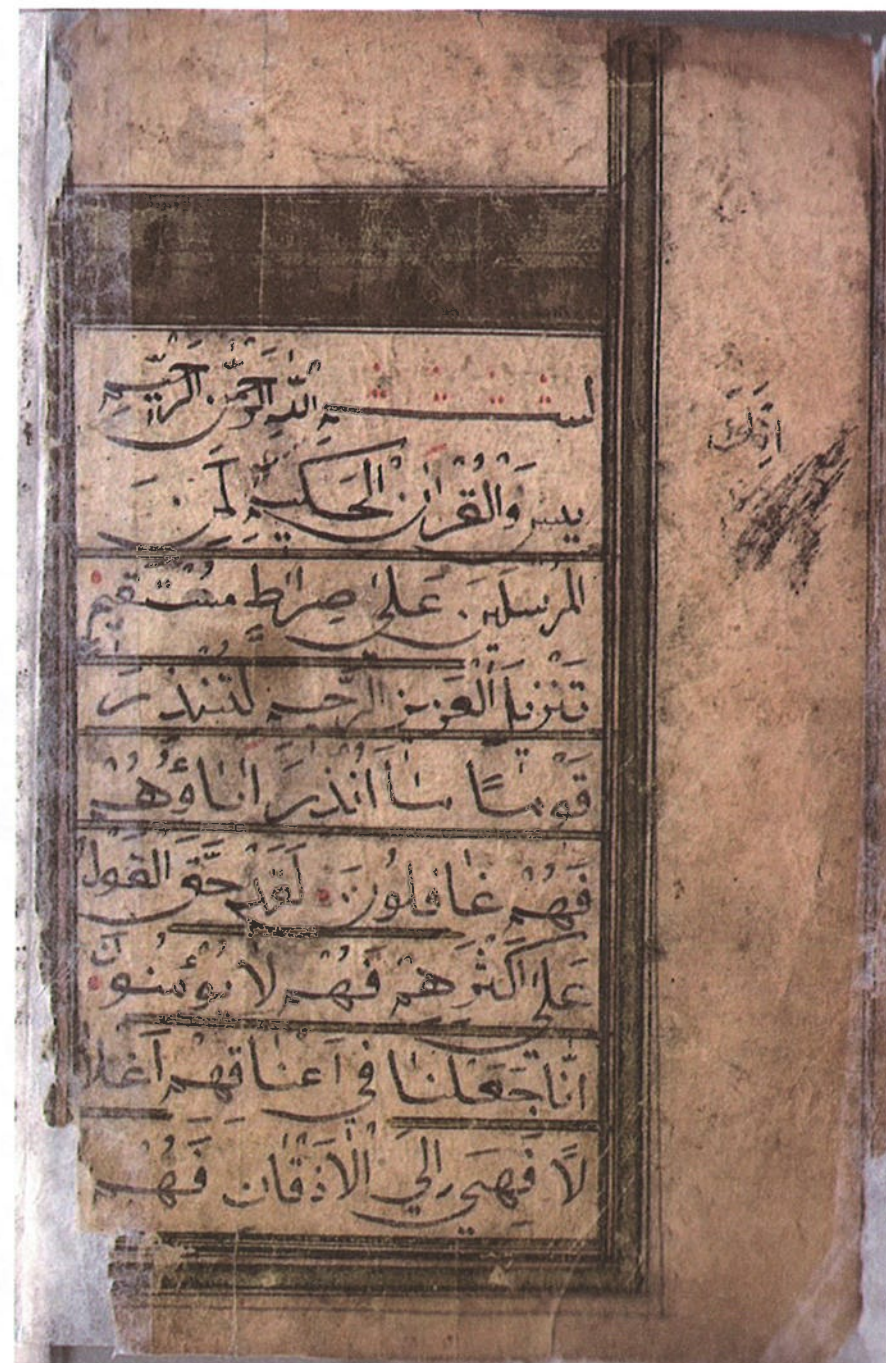 بسم الله الرحمن الرحيم
يس وَالْقُرْاٰنِ الْحَكِيمِ لَمِنَ
المُرْسَلِينَ عَلىٰ صِرَاطٍ مُسْتَقِيمٍ
تَنْزِيلَ الْعَزِيزِ الرَّحِيمِ لِتُنْذِرَ
قَوْمًا مَا اُنْذِرَ اٰبَاؤُهُمْ
فَهُمْ غَافِلُونَ لَقَدْ حَقَّ الْقَوْلُ
عَلىٰ اَكْثَرِهِمْ فَهُمْ لَا يُؤْمِنُونَ
اِنَّا جَعَلْنَا فِي اَعْنَاقِهِمْ اَغْلَا
لًا فَهِيَ اِلَي الْاَذْقَانِ فَهُمْ
اِنَّكَ